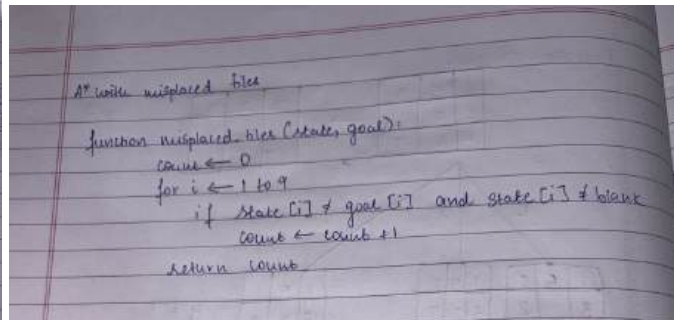 A* with misplaced tiles
function misplaced_tiles (state, goal):
count ← 0
for i ← 1 to 9
if state [i] ≠ goal [i] and state [i] ≠ blank
count ← count +1
return count